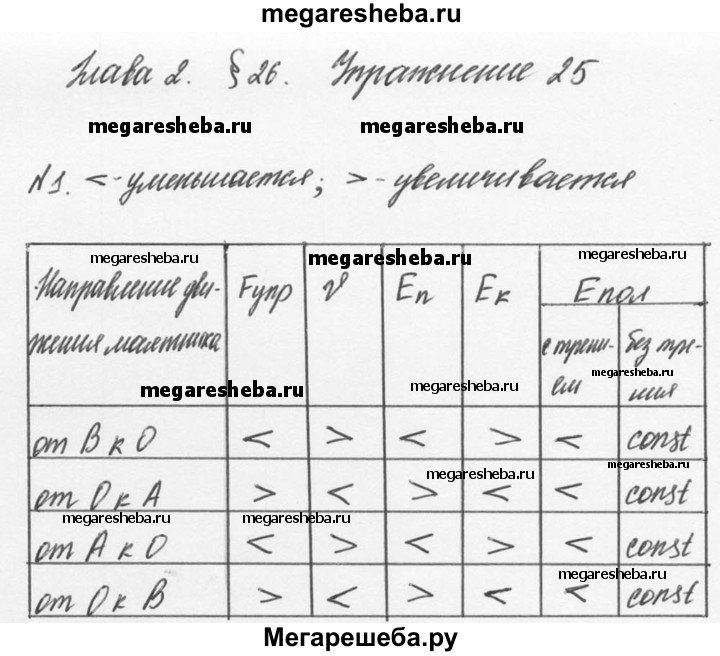 megaresheba.ru
Глава 2. § 26. Упражнение 25
megaresheba.ru megaresheba.ru
№1. < - уменьшается; > - увеличивается
megaresheba.ru megaresheba.ru megaresheba.ru
Направление дви- Fупр v Eп Eк Eпол
жения маятника с трени- без тре-
megaresheba.ru
ем ния
megaresheba.ru megaresheba.ru
от В к О < > < > < const
megaresheba.ru megaresheba.ru
от О к А > < > < < const
megaresheba.ru megaresheba.ru
от А к О < > < > < const
megaresheba.ru
от О к В > < > < < const
Мегарешеба.ру